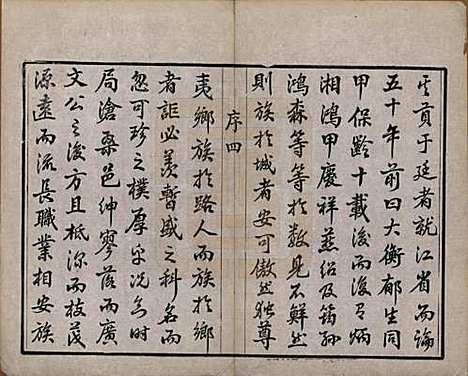 其貢于廷者就江省而論
五十年前曰大衡郁生同
甲保齡十載後而復有炳
湘鴻甲慶祥燕紹及筠孫
鴻森等等於數見不鮮然
則族於城者安可傲然獨尊
序四
夷鄉族於路人而族於鄉
者詎必羨暫盛之科名而
忽可珍之樸厚乎况今時
局滄桑邑紳寥落而廣
文公之後方且柢深而枝茂
源遠而流長職業相安族